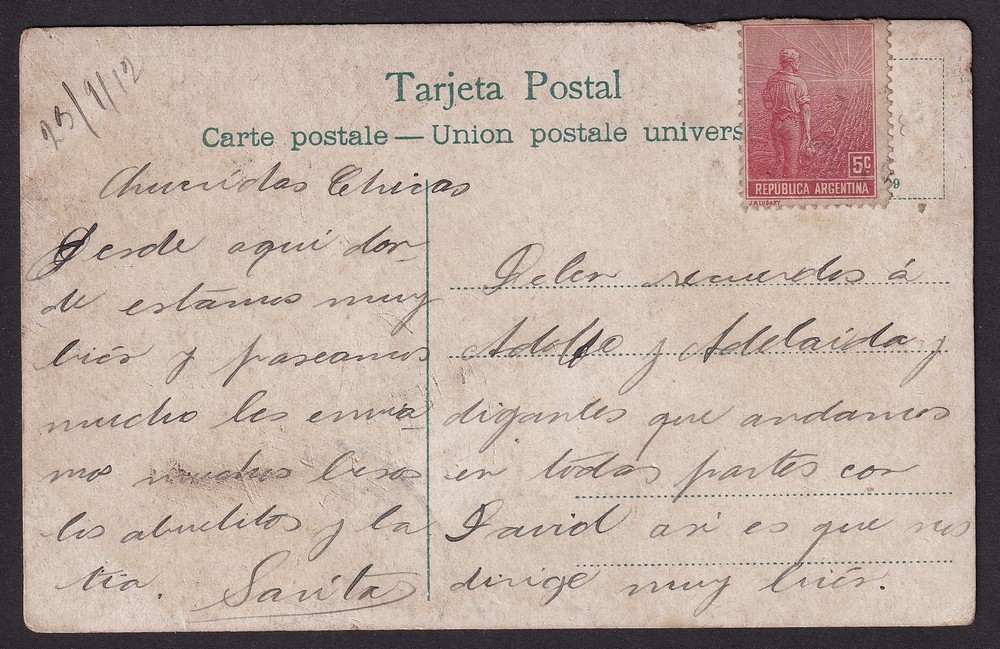 23/1/12
Tarjeta Postal
Carte postale — Union postale univers
5c
REPÚBLICA ARGENTINA
9
Chicas
Desde aqui don-
de estamos muy
bién y paseamos
mucho les envia
mos muchos besos
los abuelitos y la
tia. Sarita
Delen recuerdos á
Adolfo y Adelaida y
digantes que andamos
en todas partes con
David asi es que nos
dirige muy bién.